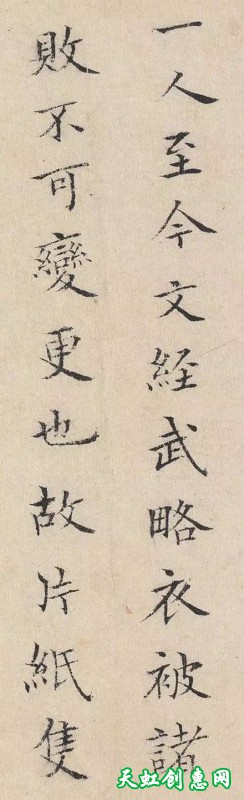 一人至今文経武略衣被諸
敗不可變更也故片紙隻
天虹创惠网